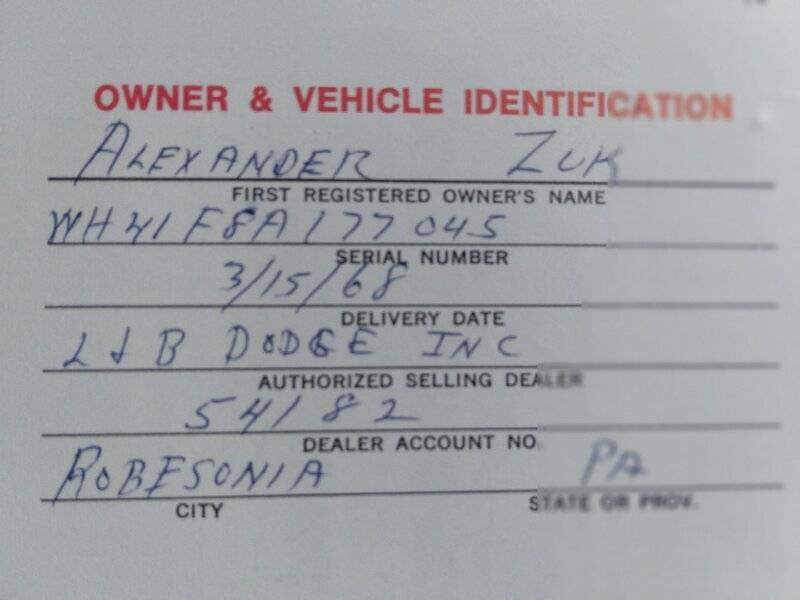 OWNER & VEHICLE IDENTIFICATION
ALEXANDER ZUK
FIRST REGISTERED OWNER'S NAME
WH41F8A177045
SERIAL NUMBER
3/15/68
DELIVERY DATE
L & B DODGE INC
AUTHORIZED SELLING DEALER
54182
DEALER ACCOUNT NO.
ROBESONIA PA
CITY STATE OR PROV.